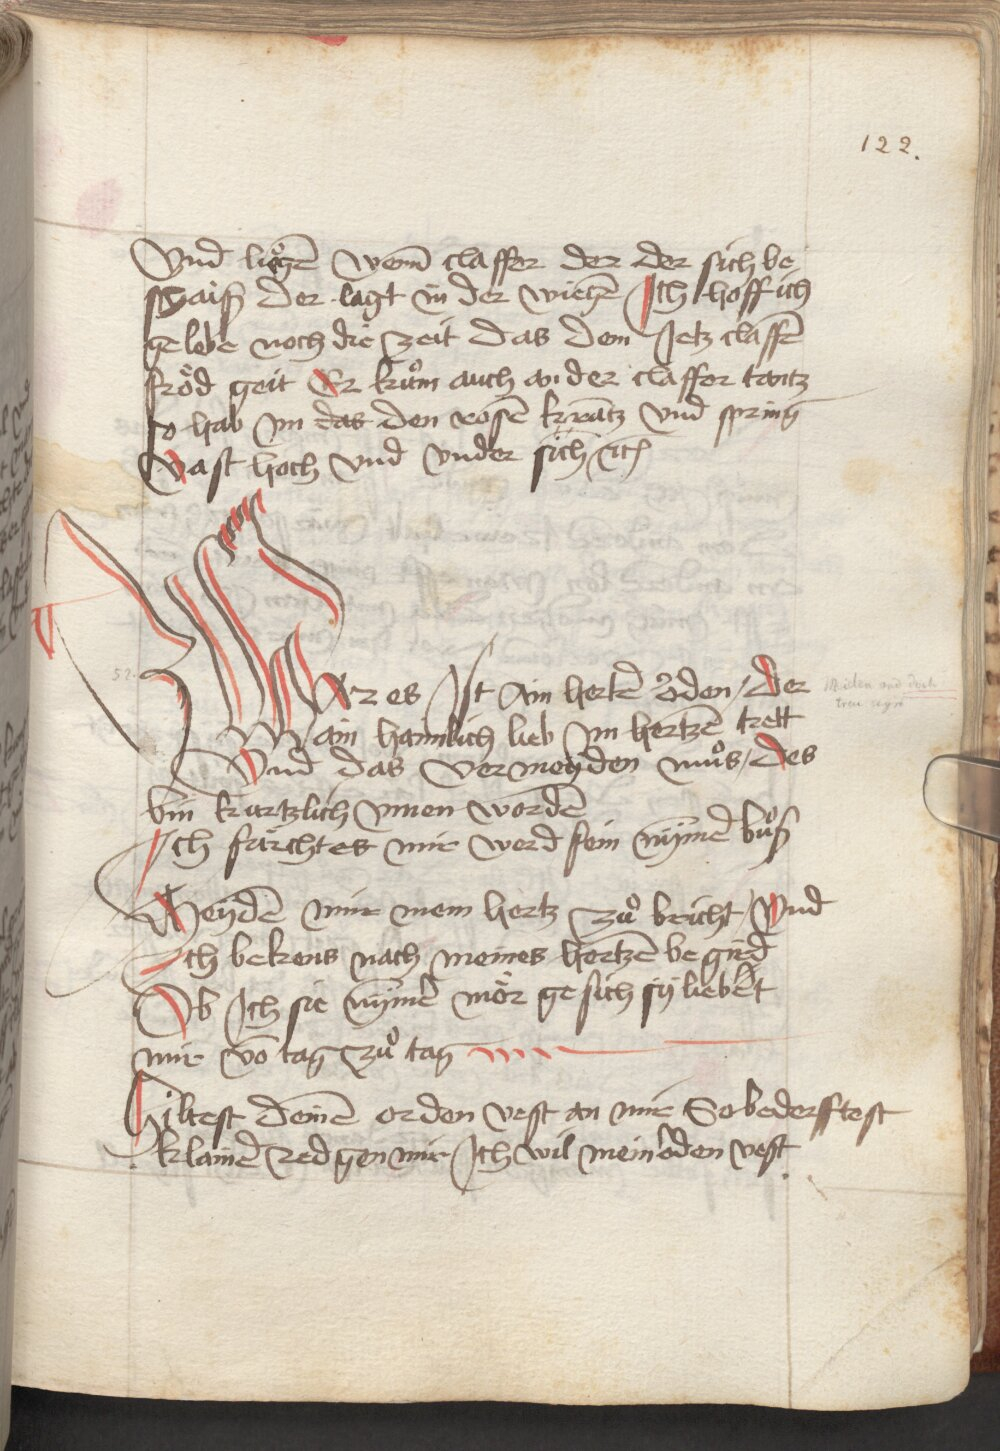 122.
Vnd liegē wenn claffer der der sich be
schaiß der lagt in der wiegē Ich hoff ich
gelebe noch die zeit das dem Jetz claffē
fröd geit Er kům auch an der claffer tantz
so hab Im das den rosē krātz vnd spring
vast hoch vnd vnder sich etc
52.
WAr es Ist Ain hertē orden / der
Main haimlich lieb Im hertzē trett
Vnd das vermeyden můs / des
bin kurtzlich Innen wordē
Ich fürcht es mir werd sein nȳmē bůß
Meydē mir mein hertz zů bricht / Vnd
Ich bekens nach meines hertzē begird
Ob Ich sie nȳmē mör gesich sy liebet
mir vō tag zů tag
Hiltest deinē orden vest an mir So bederfftest
klainē red gen mir Ich wil mein orden vest